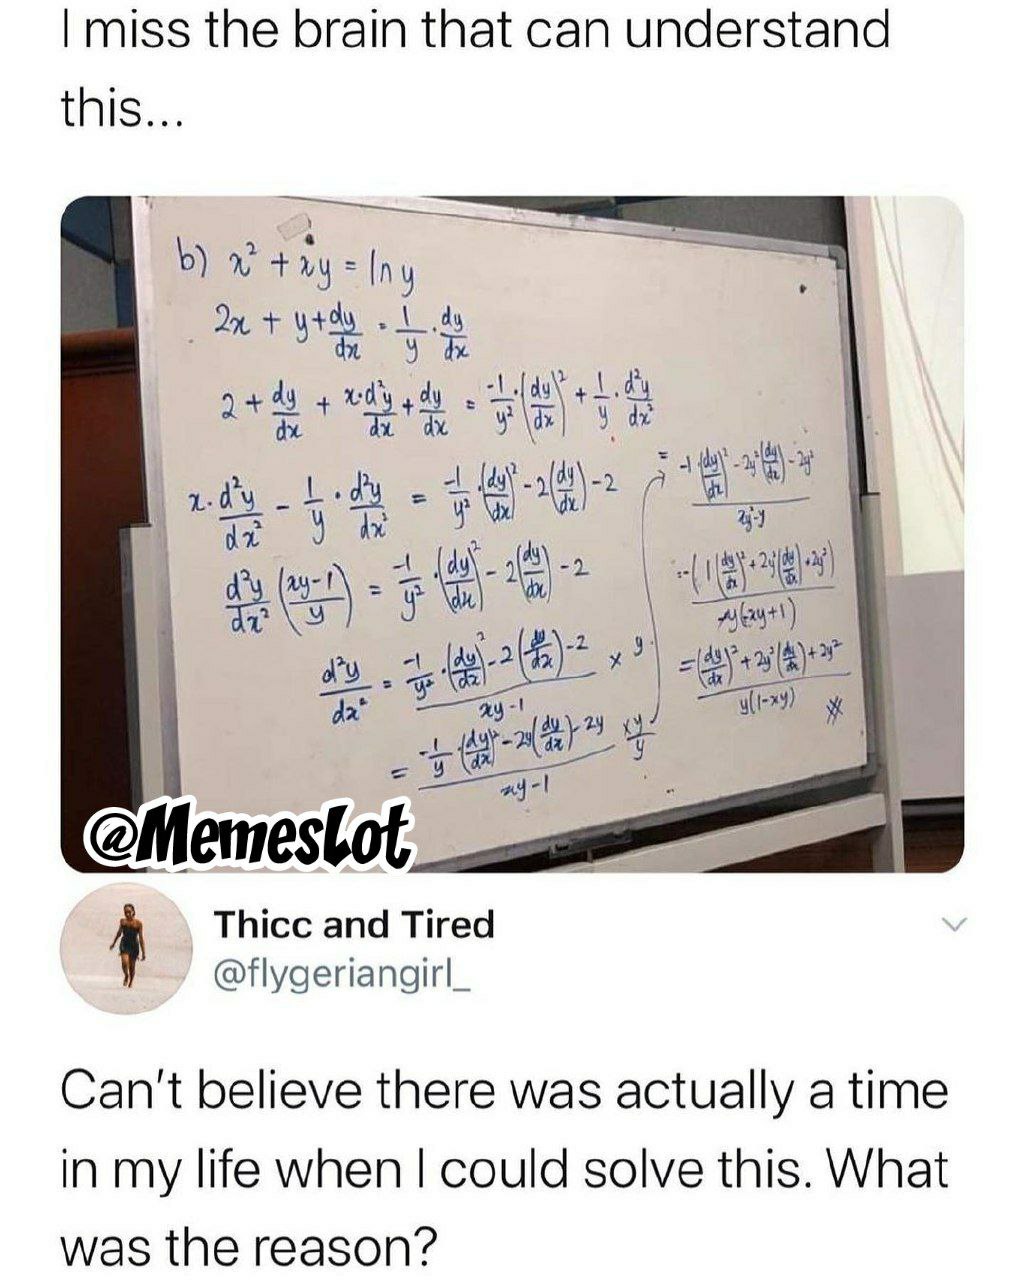 I miss the brain that can understand
this...
b) x² + xy = ln y
2x + y + dy/dx = 1/y · dy/dx
2 + dy/dx + x·d²y/dx + dy/dx = -1/y² · (dy/dx)² + 1/y · d²y/dx²
x · d²y/dx² - 1/y · d²y/dx² = -1/y² · (dy/dx)² - 2(dy/dx) - 2
d²y/dx² ((xy-1)/y) = -1/y² · (dy/dx)² - 2(dy/dx) - 2
d²y/dx² = (-1/y² · (dy/dx)² - 2(dy/dx) - 2)/(xy-1) × y
= (-1/y · (dy/dx)² - 2y(dy/dx) - 2y)/(xy-1) × y/y
= (dy/dx)² + 2y²(dy/dx) + 2y² / y(1-xy)
@MemesLot
Thicc and Tired
@flygeriangirl_
Can't believe there was actually a time
in my life when I could solve this. What
was the reason?